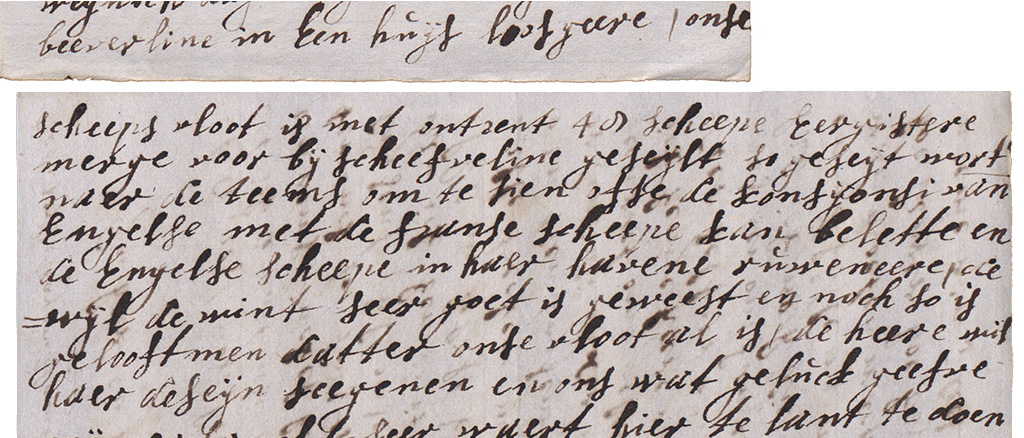 beeverline in een huijs loosgeere / onse
scheeps vloot is met ontrent 40 scheepe eergistere
merge voor bij scheefveline geseijlt so geseijt wort
naer de teems om te sien offe de konsjonsi van
Engelse met de franse scheepe kan belette en
de Engelse scheepe in haer havene ruweneere, de
=wijl de wint seer goet is geweest en noch so is
gelooft men datter onse vloot al is / de heere wil
haer deseijn seegenen en ons wat geluck geefve
seer waert hier te lant te doen